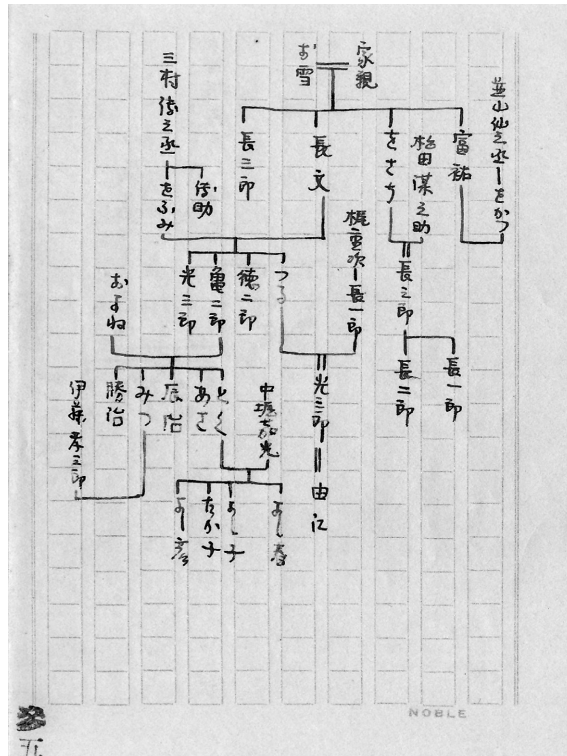 家親
お雪
並山仙之丞
をかつ
富祐
松田謀之助
をさち
長文
長三郎
三村傳之丞
傳助
をふみ
長之郎
長一郎
長二郎
梶重次
長一郎
つる
徳二郎
亀二郎
光三郎
およね
光三郎
由江
とく
あさ
辰治
みつ
勝治
伊藤孝三郎
よし春
よし子
たか子
よし彦
NOBLE